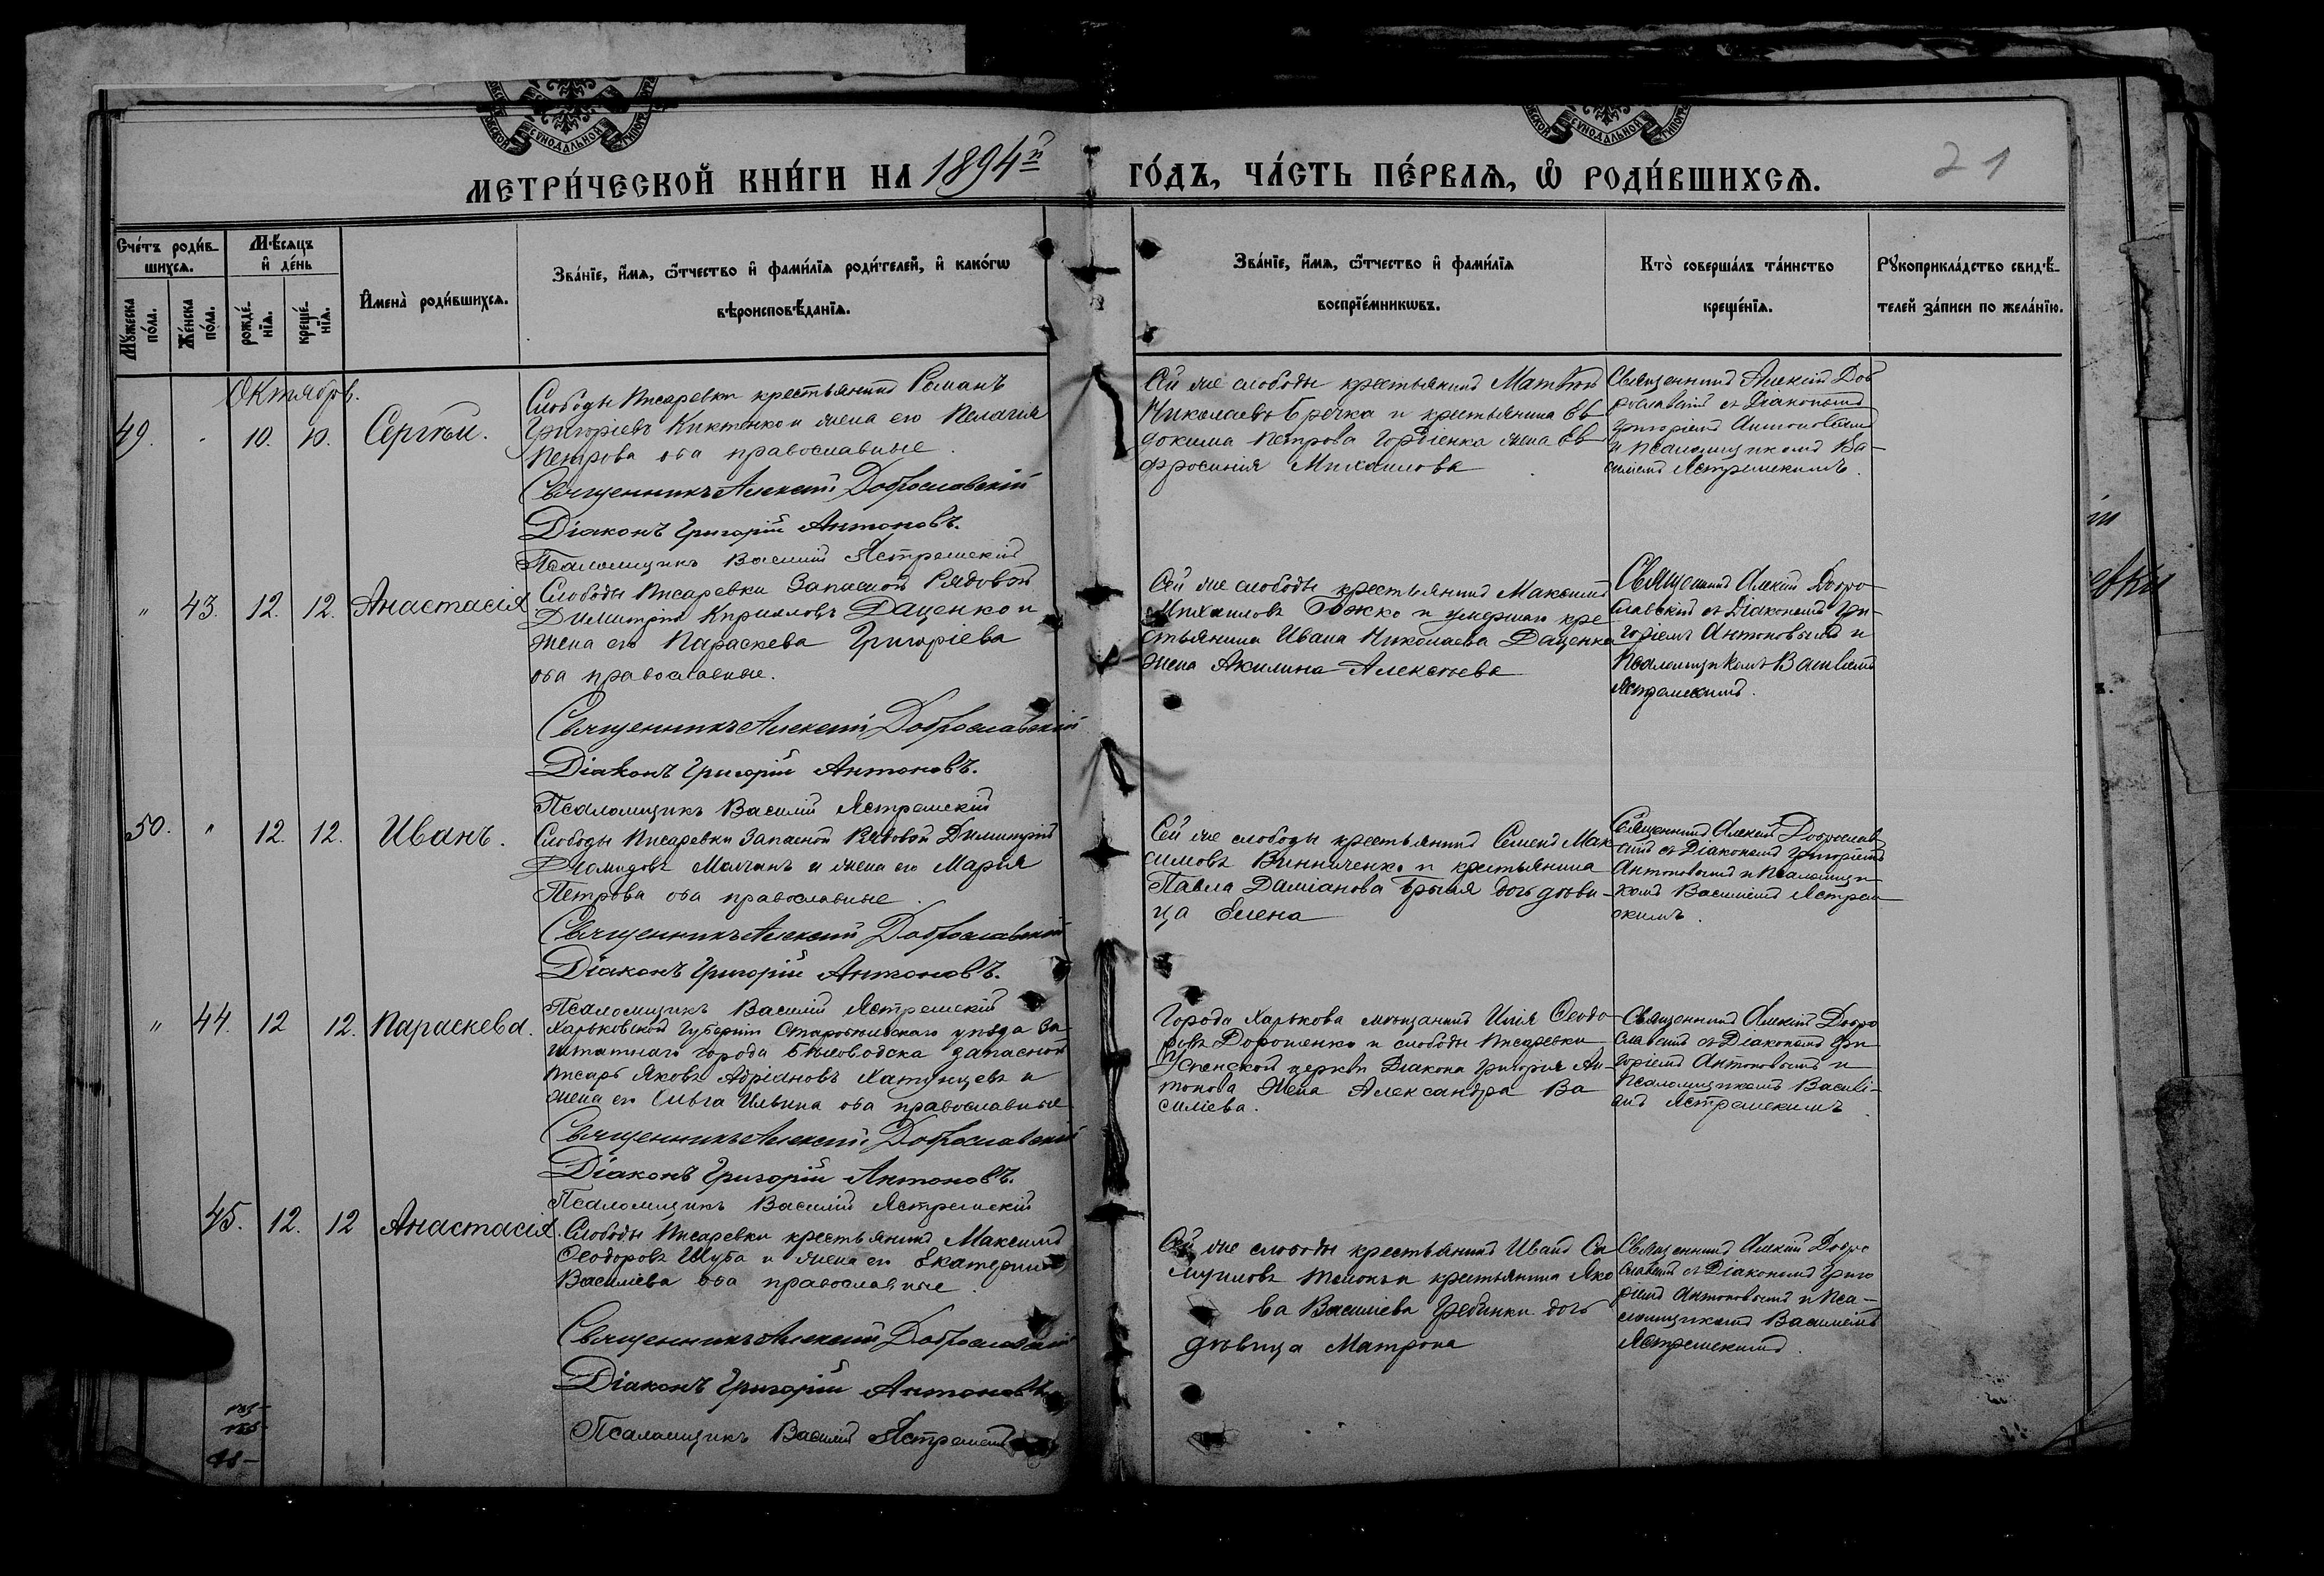 СѴНОДАЛЬНОЙ
СѴНОДАЛЬНОЙ
МЕТРИ́ЧЕСКОЙ КНИ́ГИ НА 1894й ГО́ДЪ, ЧА́СТЬ ПЕ́РВАѦ, Ѡ҆ РОДИ́ВШИХСѦ.
21
Сче́тъ роди́в-
шихсѧ.
Мꙋ́жеска по́ла.
Же́нска по́ла.
Мѣ́сѧцъ и҆ де́нь
рожде́-нїѧ.
креще́-нїѧ.
И҆мена̀ роди́вшихсѧ.
Зва́нїе, и҆́мѧ, ѻ҆́тчество и҆ фами́лїѧ роди́телей, и҆ како́гѡ
вѣроисповѣ́данїѧ.
Зва́нїе, и҆́мѧ, ѻ҆́тчество и҆ фами́лїѧ
воспрїе́мникѡвъ.
Кто̀ соверша́лъ та́инство
креще́нїѧ.
Рꙋкоприкла́дство свидѣ́-
телей за́писи по жела́нїю.
Октябрь.
49. 10. 10. Сергѣй.
Слободы Писаревки крестьянинъ Романъ
Григорьевъ и жена его Пелагія
Петрова оба православные.
Священникъ Алексій Доброславскій
Діаконъ Григорій Антоновъ.
Псаломщикъ Василій Ястремскій
Сей же слободы крестьянинъ
Николаевъ Гречка и крестьянина Ев-
докима Петрова Гордіенка жена Ев-
фросинія Михаилова
Священникъ Алексій Доб
рославскій съ Діакономъ
Григоріемъ Антоновымъ
и Псаломщикомъ Ва-
силіемъ Ястремскимъ.
" 43. 12. 12. Анастасія
Слободы Писаревки Запасной Рядовой
Димитрій Кирилловъ Даценко и
жена его Параскева Григоріева
оба православные.
Священникъ Алексій Доброславскій
Діаконъ Григорій Антоновъ.
Псаломщикъ Василій Ястремскій
Сей же слободы крестьянинъ Максимъ
Михаиловъ Божко и умершаго кре
стьянина Ивана Николаева Даценка
жена Акилина Алексѣева
Священникъ Алексій Добро-
славскій съ Діакономъ Гри-
горіемъ Антоновымъ и
Псаломщикомъ Василіемъ
Ястремскимъ.
50. " 12. 12. Иванъ.
Слободы Писаревки Запасной Рядовой Димитрій
Діомидовъ Малчанъ и жена его Марія
Петрова оба православные.
Священникъ Алексій Доброславскій
Діаконъ Григорій Антоновъ.
Псаломщикъ Василій Ястремскій
Сей же слободы крестьянинъ Семенъ Мак-
симовъ Винниченко и крестьянина
Павла Даміанова дочь дѣви-
ца Елена
Священникъ Алексій Доброслав
скій съ Діакономъ Григоріемъ
Антоновымъ и Псаломщи-
комъ Василіемъ Ястрем
скимъ.
" 44. 12 12. Параскева.
Харьковской Губерніи Старобѣльскаго уѣзда За-
штатнаго города Бѣловодска запасной
писарь Яковъ Адріановъ Хатунцевъ и
жена его Ольга Ильина оба православные
Священникъ Алексій Доброславскій
Діаконъ Григорій Антоновъ.
Псаломщикъ Василій Ястремскій
Города Харькова мѣщанинъ Илія Ѳеодо-
ровъ Дорошенко и слободы Писаревки
Успенской церкви Діакона Григорія Ан-
тонова Жена Александра Ва
силіева.
Священникъ Алексій Добро
славскій съ Діакономъ Гри-
горіемъ Антоновымъ и
Псаломщикомъ Василі-
емъ Ястремскимъ.
45. 12. 12 Анастасія.
Слободы Писаревки крестьянинъ Максимъ
Ѳеодоровъ Шуба и жена его Екатерина
Василіева оба православные.
Священникъ Алексій Доброславскій
Діаконъ Григорій Антоновъ
Псаломщикъ Василій Ястремскій
Сей же слободы крестьянинъ Иванъ Са
муиловъ и крестьянина Яко
ва Василіева Гребинки дочь
дѣвица Матрона
Священникъ Алексій Добро
славскій съ Діакономъ Григо
ріемъ Антоновымъ и Пса-
ломщикомъ Василіемъ
Ястремскимъ.